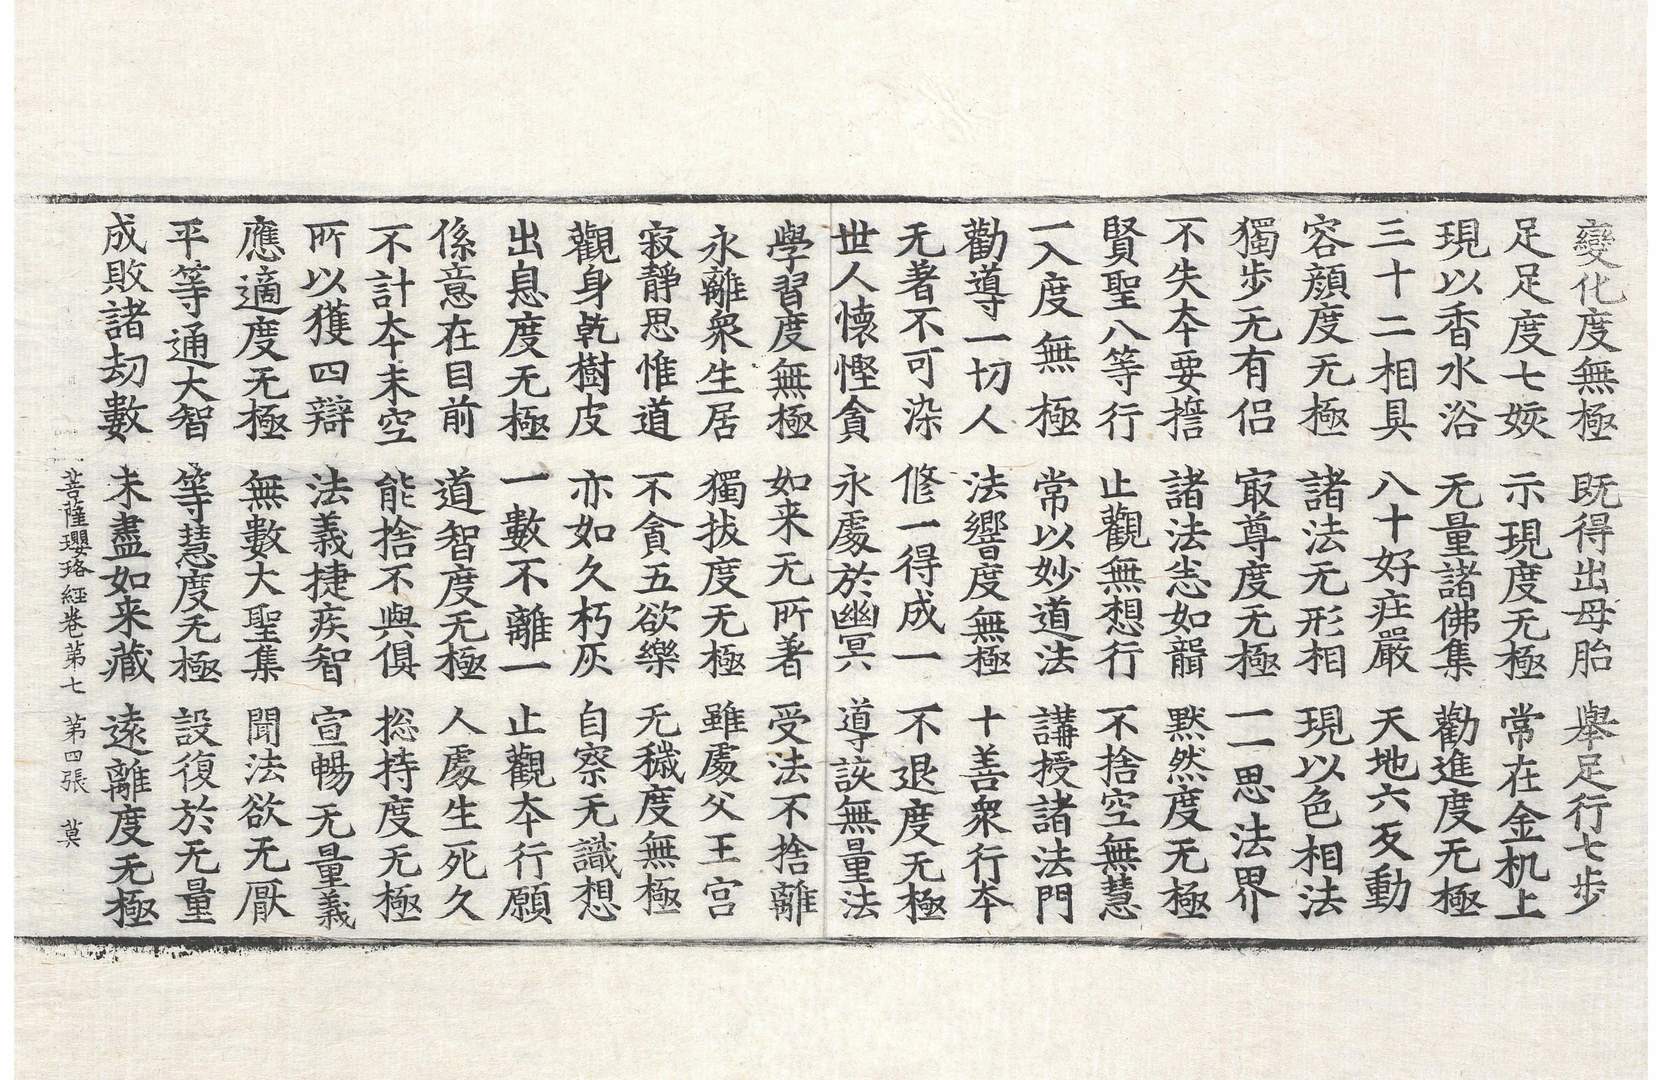 變化度無極 既得出母胎 舉足行七步
足足度七姟 示現度无極 常在金机上
現以香水浴 无量諸佛集 勸進度无極
三十二相具 八十好庄嚴 天地六反動
容顔度无極 諸法无形相 現以色相法
獨步无有侣 㝡尊度无極 一一思法界
不失夲要誓 諸法恚如𦗟 默然度无極
賢聖八等行 止觀無想行 不捨空無慧
一入度無極 常以妙道法 講授諸法門
勸導一切人 法響度無極 十善衆行夲
无著不可染 修一得成一 不退度无極
世人懷慳貪 永處於幽冥 導該無量法
學習度無極 如来无所著 受法不捨離
永離衆生居 獨拔度无極 雖處父王宫
寂靜思惟道 不貪五欲樂 无穢度無極
觀身乾樹皮 亦如久朽灰 自察无識想
出息度无極 一數不離一 止觀夲行願
係意在目前 道智度无極 人處生死久
不計夲末空 能捨不與俱 揔持度无極
所以獲四辯 法義捷疾智 宣暢无量義
應適度无極 無數大聖集 聞法欲无厭
平等通大智 等慧度无極 設復於无量
成敗諸劫數 未盡如来藏 遠離度无極
菩薩瓔珞經卷第七 第四張 莫